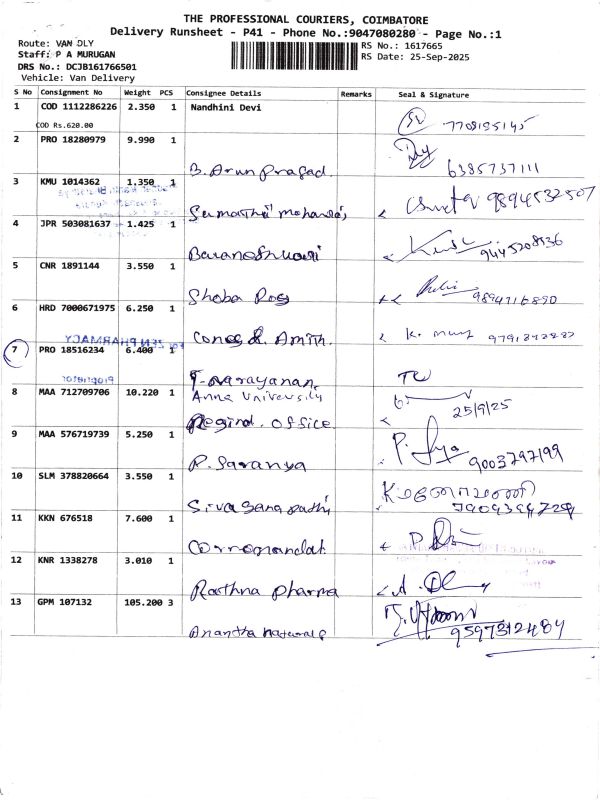 THE PROFESSIONAL COURIERS, COIMBATORE
Delivery Runsheet - P41 - Phone No.:9047080280 - Page No.:1
Route: VAN DLY
Staff: P A MURUGAN
DRS No.: DCJB161766501
Vehicle: Van Delivery
RS No.: 1617665
RS Date: 25-Sep-2025
S No Consignment No Weight PCS Consignee Details Remarks Seal & Signature
1 COD 1112286226 2.350 1 Nandhini Devi
COD Rs.620.00
7708195145
2 PRO 18280979 9.990 1
B. Arun prasad. 6385737111
3 KMU 1014362 1.350 1
Sumathi 9894532507
4 JPR 503081637 1.425 1
9445208536
5 CNR 1891144 3.550 1
Shoba 9894716890
6 HRD 7000671975 6.250 1
FOR ZEN PHARMACY
7 PRO 18516234 6.400 1
Proprietor
T. Narayanan.
8 MAA 712709706 10.220 1 Anna University
Regind. Office 25/9/25
9 MAA 576719739 5.250 1
P. Saranya 9003797199
10 SLM 378820664 3.550 1
Siva Ganapathi
11 KKN 676518 7.600 1
Corromandal
12 KNR 1338278 3.010 1
Rathna pharma
13 GPM 107132 105.200 3
Anantha naturals 9597312484